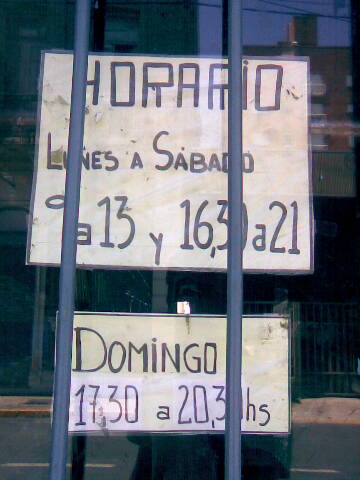 HORARIO
LUNES A SÁBADO
9 a 13 y 16,30 a 21
DOMINGO
17,30 a 20,30 hs